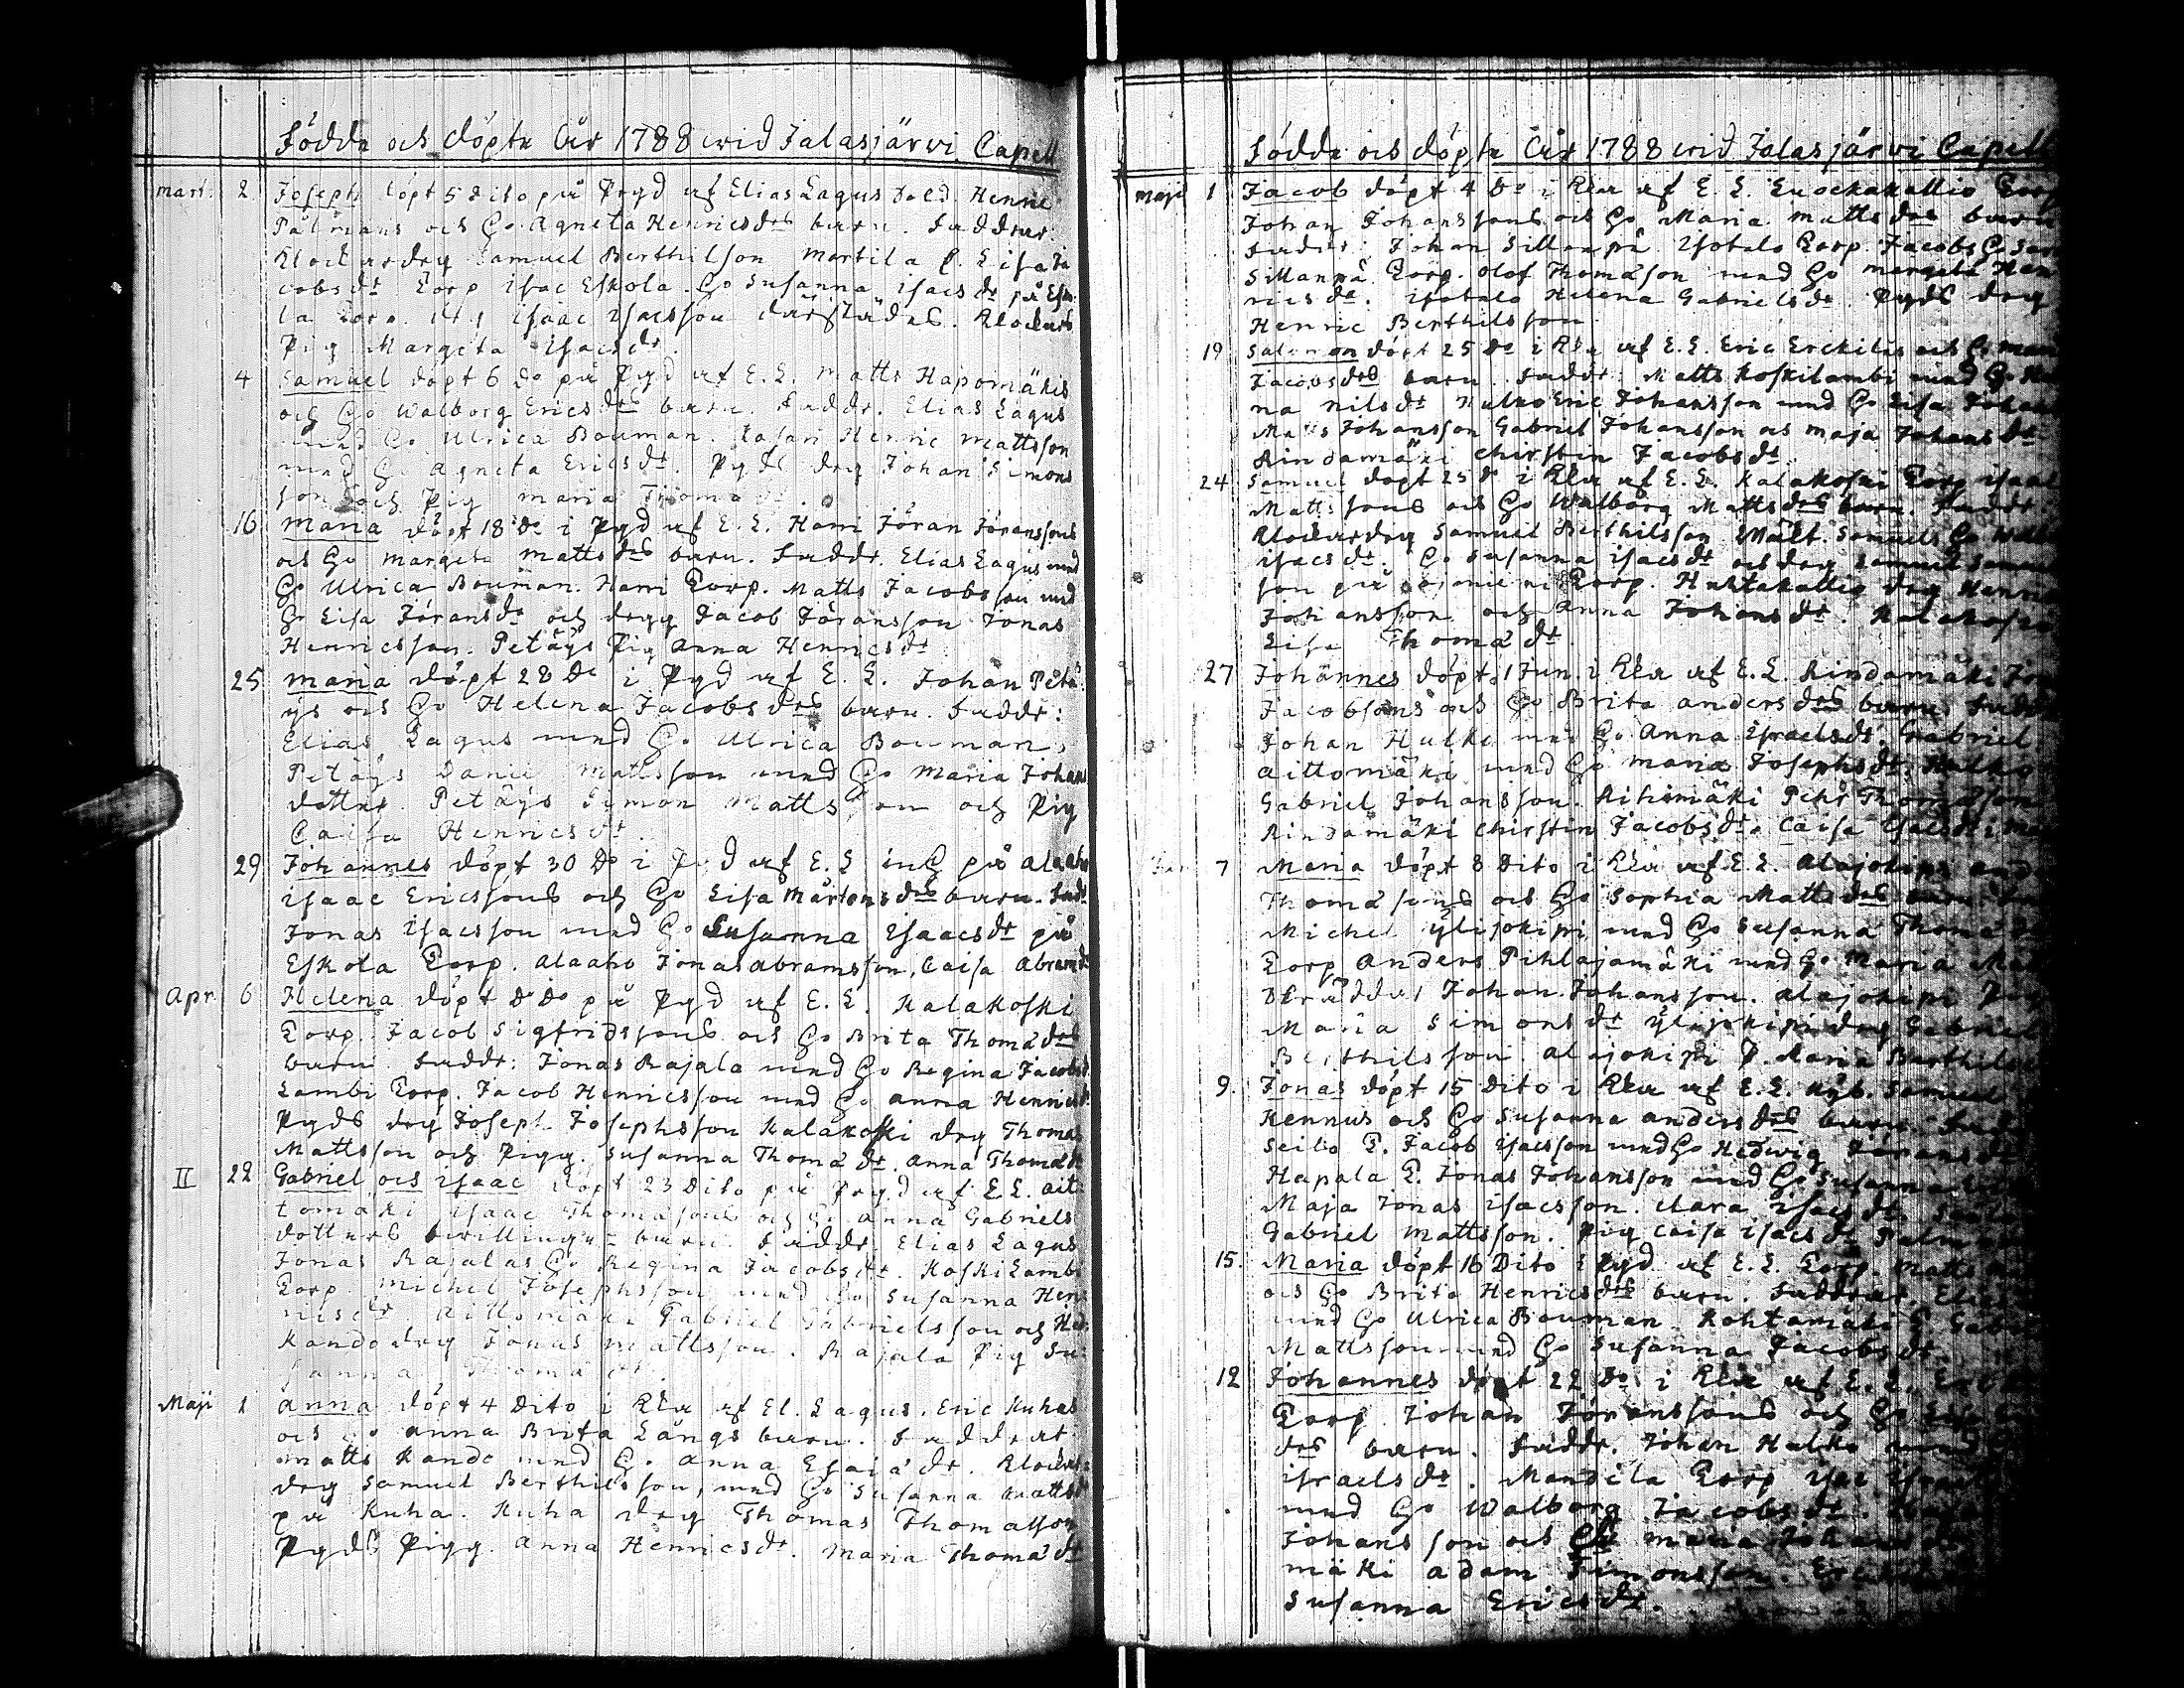 Födde och döpte åhr 1788 wid Jalasjärvi Capell
Mart. 2. Joseph döpt 5 dito på Prgd af Elias Lagus Sold. Henric
Pålmans och Hu Agneta Henricsdrs barn. Faddrar:
Klockardrg Samuel Berthilson Martila P. Lisa Ja
cobsdr Torp Isac Eskola. Hu Susanna Isacsdr på Esko
la Torp. Isaac Isacsson därstädes. Klockars
Pig Margeta Isacsdr.
4 Samuel döpt 6 do på Prgd af E. L. Matts Hapomäkis
och Hu Walborg Ericsdrs barn. Faddr. Elias Lagus
med Hu Ulrica Bouman. Henric Mattsson
med Hu Agneta Ericsdr. Pgds drg Johan Simons
son och Pig Maria Thomadr.
16 Maria döpt 18 do i Pgd af E. L. Harri Jöran Jöranssons
och Hu Margeta Mattsdrs barn. Faddr. Elias Lagus med
Hu Ulrica Bouman. Harri Torp. Matts Jacobsson med
Hu Lisa Jöransdr och drgg Jacob Jöransson Jonas
Henricsson. Petäys Pig Anna Henricsdr
25 Maria döpt 28 do i Pgd af E. L. Johan Petä
ys och Hu Helena Jacobsdrs barn. Faddr:
Elias Lagus med Hu Ulrica Bouman,
Petäys Daniel Mattsson med Hu Maria Johans
dotter. Petäys Simon Mattsson och Pig
Caisa Henricsdr.
29 Johannes döpt 30 do i Pgd af E. L. inh på Alaaho
Isaac Ericssons och Hu Lisa Mårtensdrs barn. Fadr
Jonas Isacsson med Hu Susanna Isaacsdr på
Eskola Torp. Alaaho Jonas Abramsson, Caisa Abramsdr
Apr. 6 Helena döpt do do på Pgd af E. L. Kalakoski
Torp. Jacob Sigfridssons och Hu Brita Thomadrs
barn. Faddr: Jonas Rajala med Hu Regina Jacobsdr
Lambi Torp. Jacob Henricsson med Hu Anna Henricsdr
Pgds drg Joseph Josephsson Kalakoski drg Thomas
Mattsson och Pigg. Susanna Thomadr. Anna Thomadr
II 22 Gabriel och Isaac döpt 23 Dito på Prgd af E. L. Ait
tomäki Isaac Thomasons och Hu Anna Gabriels
dotters twillinge-barn Faddr. Elias Lagus
Jonas Rajalas Hu Regina Jacobsdr. Koskilambi
Torp. Michel Josephsson med Hu Susanna Hen
ricsdr. Aittomäki Gabriel Gabrielsson och
Kando drg Jonas Mattsson. Rajala Pig Su-
sanna Thomadr.
Maji 1 Anna döpt 4 Dito i Kka af El. Lagus. Eric Kuhas
och Hu Anna Brita Längs barn. Faddrar
Matts Kando med Hu Anna Esaiadr. Klockar
drg Samuel Berthilsson, med Hu Susanna Mattsdr
på Kuha. Kuha drg Thomas Thomasson
Pgds Pigg. Anna Henricsdr. Maria Thomadr
Födde och döpte åhr 1788 wid Jalasjärvi Capell
Maji 1 Jacob döpt 4 do i Kka af E. L. Luockakallio Torp
Johan Johanssons och Hu Maria Mattsdrs barn
Faddr: Johan Sillanpä. Isotalo Torp. Jacobs Hu
Sillanpä Torp. Olof Thomasson med Hu Margeta Hen
ricsdr. Isotalo Helena Gabrielsdr. Pgds drg
Henric Berthilsson.
19 Salomon döpt 25 do i Kka af E. L. Eric Erckilas och Hu
Jacobsdrs barn. Faddr: Matts Koskilambi med Hu
na Nilsdr Hulko Eric Johansson med Hu Lisa Johans
Matts Johansson Gabriel Johansson och Maja Johansdr
Rindamäki Chirstin Jacobsdr
24 Samuel döpt 25 do i Kka af E. L. Kalakoski Torp Isaac
Mattssons och Hu Walborg Mattsdrs barn. Faddr.
Klockardrg Samuel Berthilsson Mält. Samuels Hu
Isacsdr. Hu Susanna Isacsdr och drg Samuel Samuel
son på Torp. Huhtakallio drg Henric
Johansson och Anna Johansdr. Kalakoski
Lisa Thomadr
27 Johannes döpt 1 Jun. i Kka af E. L. Rindamäki
Jacobsons och Hu Brita Andersdrs barn. Fadd
Johan Hulko med Hu Anna Israelsdr. Gabriel
Aittomäki med Hu Maria Josephsdr. Hulko
Gabriel Johansson. Rihimäki Pehr Thomasson
Rindamäki Chirstin Jacobsdr. Caisa Isacsdr
Jun. 7 Maria döpt 8 Dito i Kka af E. L. Alajokipi And
Thomasons och Hu Sophia Mattsdrs barn.
Michel Ylijokipi med Hu Susanna Thomadr
Torp Anders Pihlajamäki med Hu Maria
Johan Johansson. Alajokipi Pig
Maria Simonsdr Ylijokipi drg Gabriel
Berthilsson. Alajokipi P. Maria Berthils
9. Jonas döpt 15 Dito i Kka af E. L. Nyb. Samuel
Kennus och Hu Susanna Andersdrs barn. Fad
Seibo T. Jacob Isacsson med Hu Hedwig Jöransdr
Hapala T. Jonas Johansson med Hu Susanna
Maja Jonas Isacsson. Clara Isacsdr
Gabriel Mattsson. Pig Caisa Isacsdr
15. Maria döpt 16 Dito i Pgd af E. L. Torp. Matts
och Hu Brita Henricsdrs barn. Faddrar, Elias
med Hu Ulrica Bouman. Kohtamäki T. Gabriel
Mattsson med Hu Susanna Jacobsdr
12 Johannes döpt 22 do i Kka af E. L.
Torp Johan Jöranssons och Hu
drs barn. Faddr. Johan Hulko med
Israelsdr. Mandila Torp Isac
med Hu Walborg Jacobsdr.
Johansson och Maria Johans
mäki Adam Simonsson.
Susanna Ericsdr.